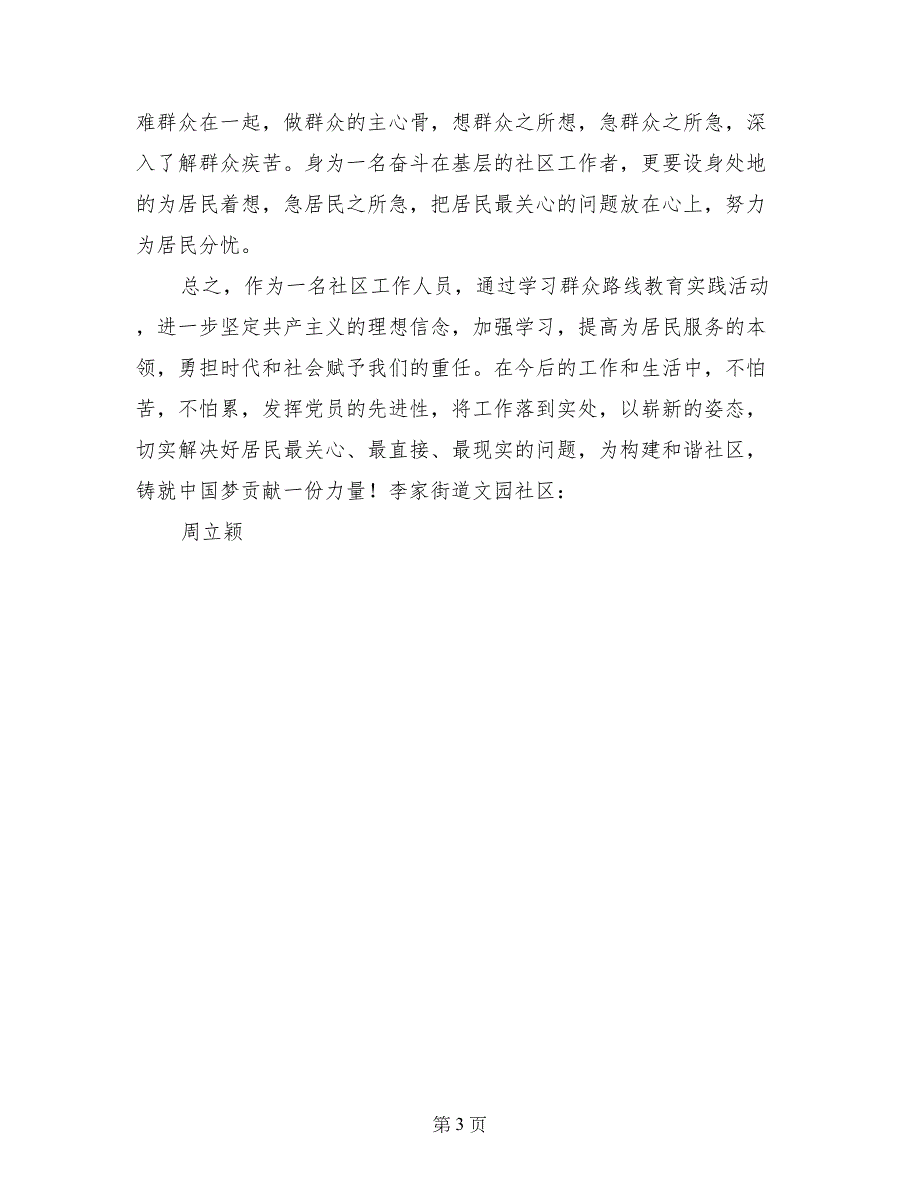 难群众在一起，做群众的主心骨，想群众之所想，急群众之所急，深
入了解群众疾苦。身为一名奋斗在基层的社区工作者，更要设身处地
的为居民着想，急居民之所急，把居民最关心的问题放在心上，努力
为居民分忧。
总之，作为一名社区工作人员，通过学习群众路线教育实践活动
，进一步坚定共产主义的理想信念，加强学习，提高为居民服务的本
领，勇担时代和社会赋予我们的重任。在今后的工作和生活中，不怕
苦，不怕累，发挥党员的先进性，将工作落到实处，以崭新的姿态，
切实解决好居民最关心、最直接、最现实的问题，为构建和谐社区，
铸就中国梦贡献一份力量！李家街道文园社区：
周立颖
第 3 页